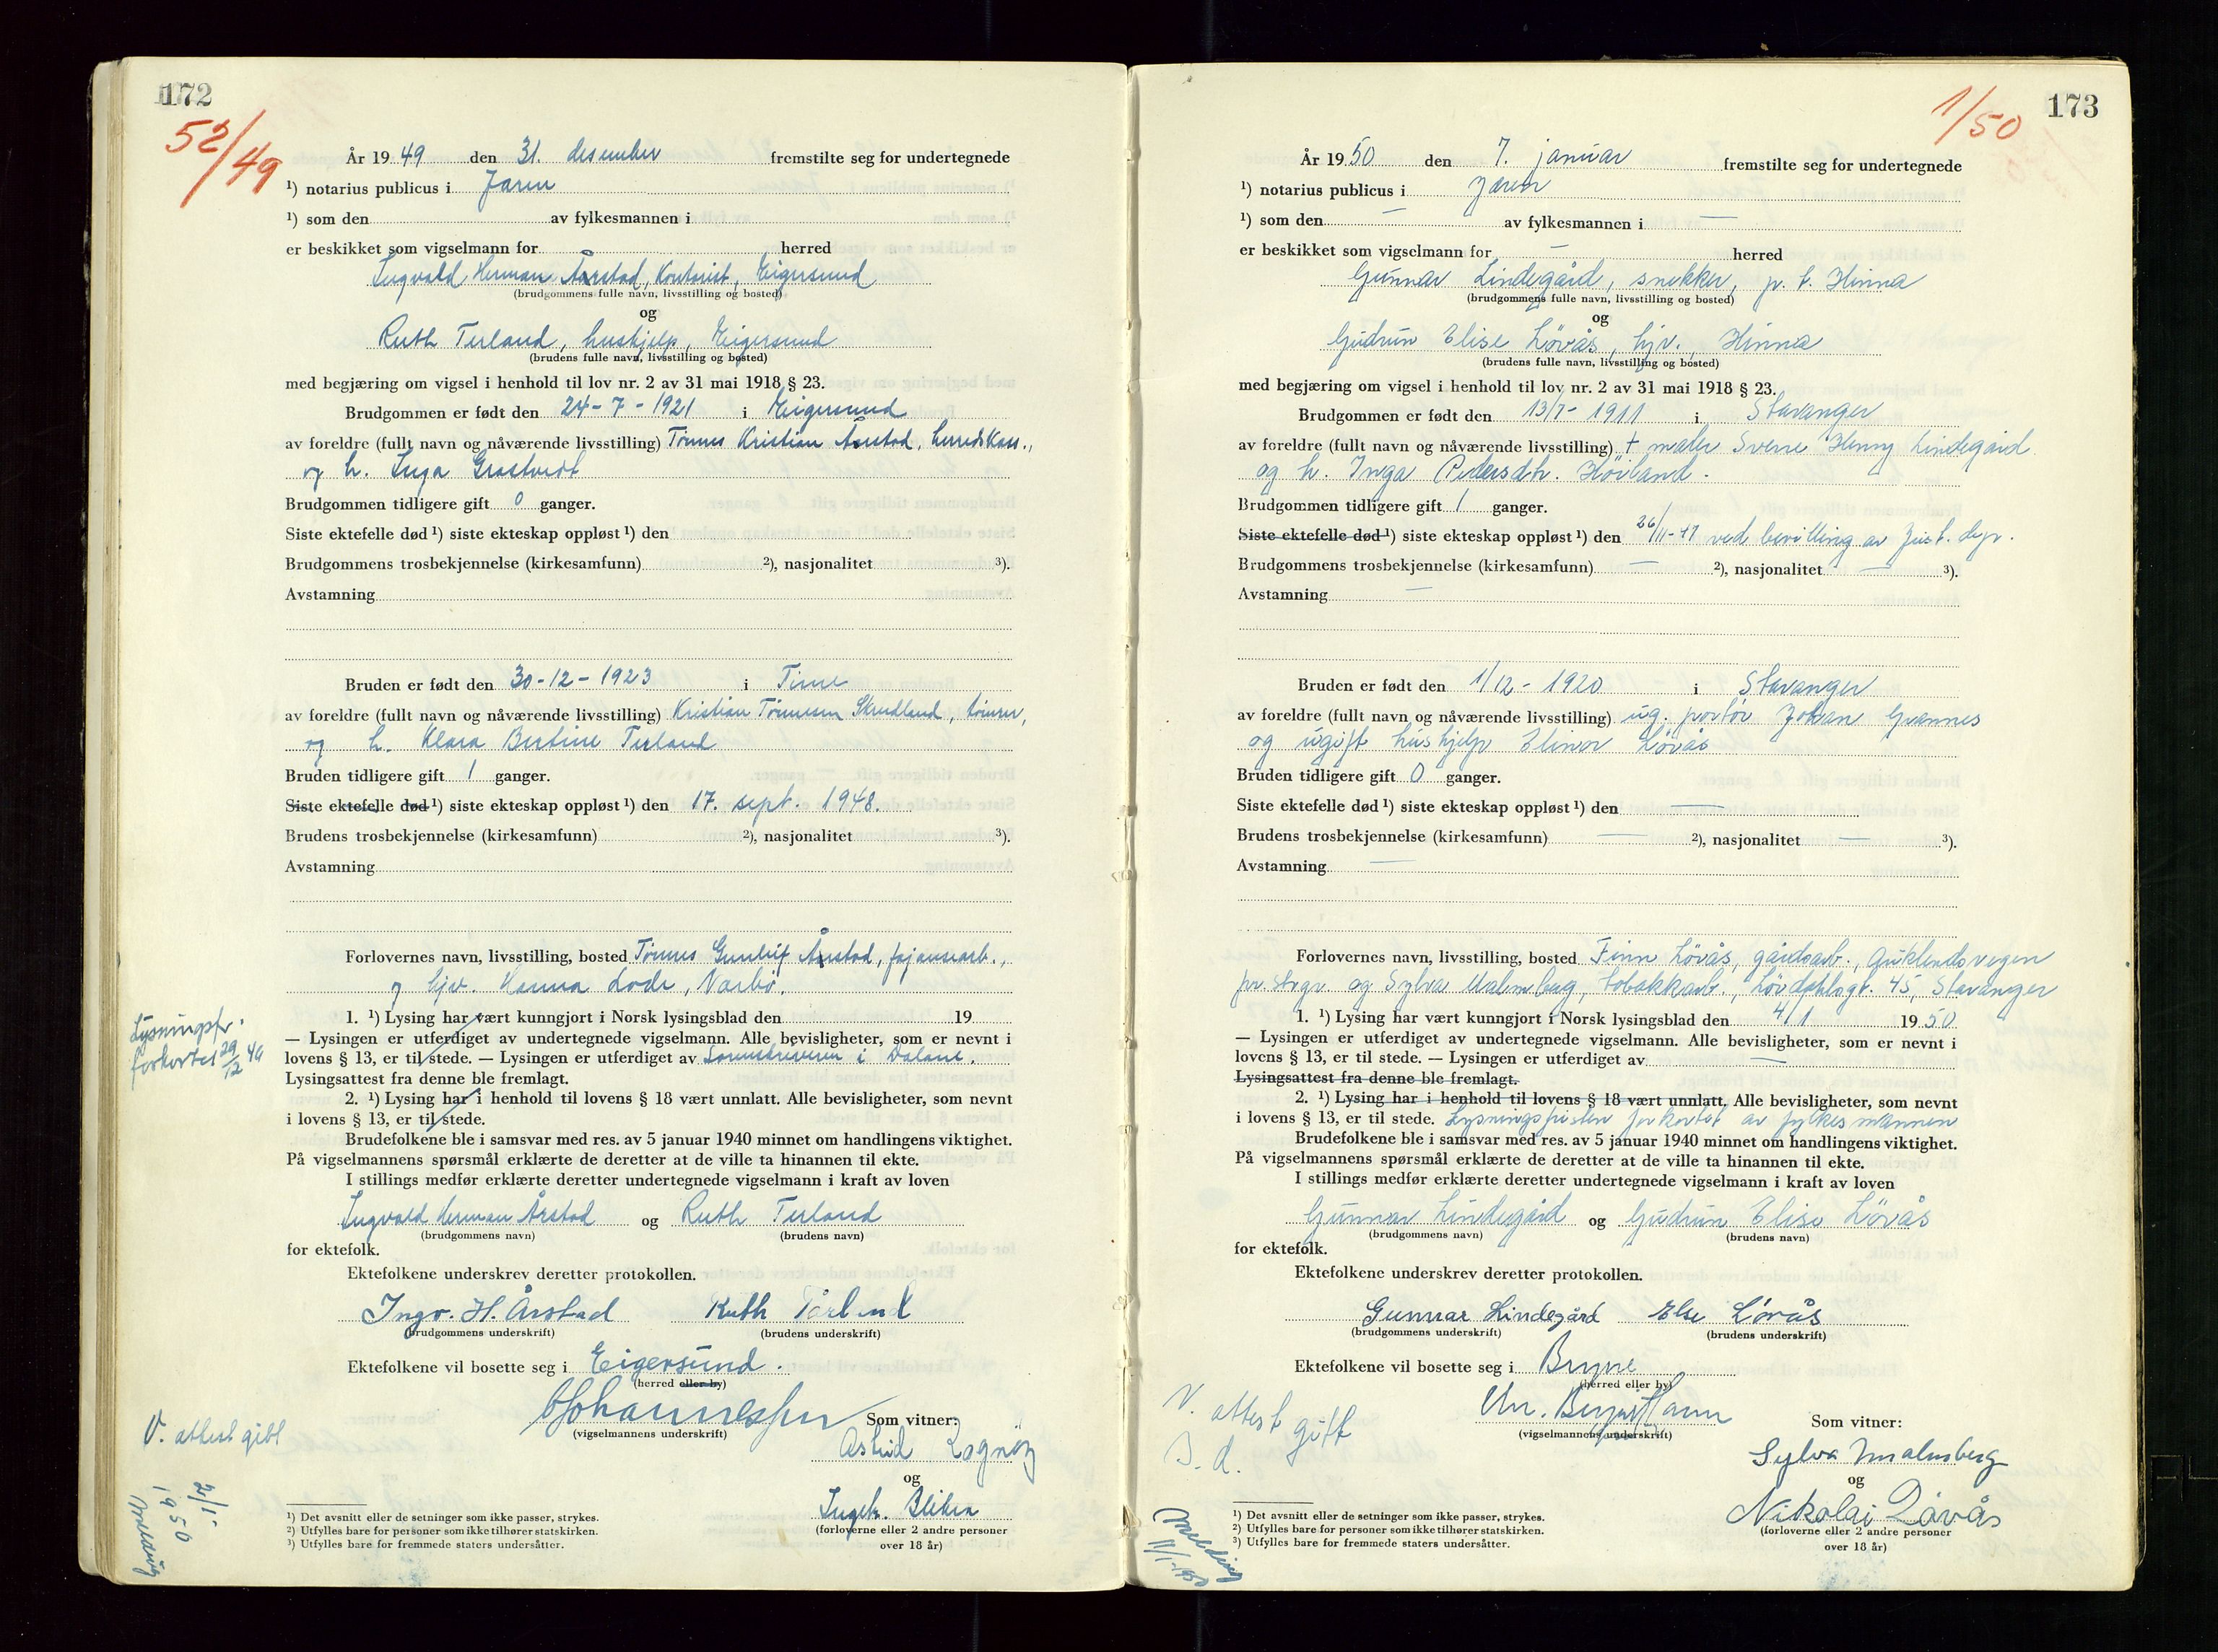 172
52/49
År 1949 den 31. desember fremstilte seg for undertegnede
¹) notarius publicus i Jæren
¹) som den av fylkesmannen i
er beskikket som vigselmann for herred
Ingvald Herman Årstad, kontorist, Eigersund
(brudgommens fulle navn, livsstilling og bosted)
og
Ruth Terland, hushjelp, Eigersund
(brudens fulle navn, livsstilling og bosted)
med begjæring om vigsel i henhold til lov nr. 2 av 31 mai 1918 § 23.
Brudgommen er født den 24-7-1921 i Eigersund
av foreldre (fullt navn og nåværende livsstilling) Tønnes Kristian Årstad, herredskass.,
og h. Inga Grastveit
Brudgommen tidligere gift 0 ganger.
Siste ektefelle død ¹) siste ekteskap oppløst ¹) den
Brudgommens trosbekjennelse (kirkesamfunn) ²), nasjonalitet ³).
Avstamning
Bruden er født den 30-12-1923 i Time
av foreldre (fullt navn og nåværende livsstilling) Kristian Tønnesen Skrudland, tømrer,
og h. Klara Bertine Terland
Bruden tidligere gift 1 ganger.
Siste ektefelle død ¹) siste ekteskap oppløst ¹) den 17. sept. 1948.
Brudens trosbekjennelse (kirkesamfunn) ²), nasjonalitet ³).
Avstamning
Forlovernes navn, livsstilling, bosted Tønnes Gunleif Årstad, fajansearb.,
og hjv. Hanna Lode, Nærbø.
1. ¹) Lysing har vært kunngjort i Norsk lysingsblad den 19
— Lysingen er utferdiget av undertegnede vigselmann. Alle bevisligheter, som er nevnt i
lovens § 13, er til stede. — Lysingen er utferdiget av Sorenskriveren i Dalane.
Lysingsattest fra denne ble fremlagt.
Lysningsfr.
forkortes 29/12 49
2. ¹) Lysing har i henhold til lovens § 18 vært unnlatt. Alle bevisligheter, som nevnt
i lovens § 13, er til stede.
Brudefolkene ble i samsvar med res. av 5 januar 1940 minnet om handlingens viktighet.
På vigselmannens spørsmål erklærte de deretter at de ville ta hinannen til ekte.
I stillings medfør erklærte deretter undertegnede vigselmann i kraft av loven
Ingvald Herman Årstad og Ruth Terland
(brudgommens navn) (brudens navn)
for ektefolk.
Ektefolkene underskrev deretter protokollen.
Ingv. H. Årstad Ruth Tærland
(brudgommens underskrift) (brudens underskrift)
Ektefolkene vil bosette seg i Eigersund.
(herred eller by)
Johannessen Som vitner:
(vigselmannens underskrift)
Astrid
og
V. attest gitt
2/1-
1950
Melding
(forloverne eller 2 andre personer
over 18 år)
¹) Det avsnitt eller de setninger som ikke passer, strykes.
²) Utfylles bare for personer som ikke tilhører statskirken.
³) Utfylles bare for fremmede staters undersåtter.
1/50
173
År 1950 den 7. januar fremstilte seg for undertegnede
¹) notarius publicus i Jæren
¹) som den — av fylkesmannen i —
er beskikket som vigselmann for — herred
Gunnar Lindegård, snekker, p. t. Hinna
(brudgommens fulle navn, livsstilling og bosted)
og
Gudrun Elise Løvås, hjv., Hinna
(brudens fulle navn, livsstilling og bosted)
med begjæring om vigsel i henhold til lov nr. 2 av 31 mai 1918 § 23.
Brudgommen er født den 13/7-1911 i Stavanger
av foreldre (fullt navn og nåværende livsstilling) + maler Sverre Henry Lindegård
og h. Inga Pedersdtr. Høiland.
Brudgommen tidligere gift 1 ganger.
Siste ektefelle død ¹) siste ekteskap oppløst ¹) den 26/11-47 ved bevilling av Just. dep.
Brudgommens trosbekjennelse (kirkesamfunn) — ²), nasjonalitet — ³).
Avstamning —
Bruden er født den 1/12-1920 i Stavanger
av foreldre (fullt navn og nåværende livsstilling) ug. portør Johan Grannes
og ugift hushjelp Elinor Løvås
Bruden tidligere gift 0 ganger.
Siste ektefelle død ¹) siste ekteskap oppløst ¹) den —
Brudens trosbekjennelse (kirkesamfunn) — ²), nasjonalitet — ³).
Avstamning —
Forlovernes navn, livsstilling, bosted Finn Løvås, gårdsarb., Auklendsvegen
pr. Stvgr. og Sylva Malmberg, tobakkarb., 45, Stavanger
1. ¹) Lysing har vært kunngjort i Norsk lysingsblad den 4/1 1950
— Lysingen er utferdiget av undertegnede vigselmann. Alle bevisligheter, som er nevnt i
lovens § 13, er til stede. — Lysingen er utferdiget av —
Lysingsattest fra denne ble fremlagt.
2. ¹) Lysing har i henhold til lovens § 18 vært unnlatt. Alle bevisligheter, som nevnt
i lovens § 13, er til stede. Lysningsfristen forkortet av fylkesmannen
Brudefolkene ble i samsvar med res. av 5 januar 1940 minnet om handlingens viktighet.
På vigselmannens spørsmål erklærte de deretter at de ville ta hinannen til ekte.
I stillings medfør erklærte deretter undertegnede vigselmann i kraft av loven
Gunnar Lindegård og Gudrun Elise Løvås
(brudgommens navn) (brudens navn)
for ektefolk.
Ektefolkene underskrev deretter protokollen.
Gunnar Lindegård Else Løvås
(brudgommens underskrift) (brudens underskrift)
Ektefolkene vil bosette seg i Bryne
(herred eller by)
Som vitner:
(vigselmannens underskrift)
Sylva Malmberg
og
Nikolai Løvås
V. attest gitt
s. d.
Melding
11/1-1950
(forloverne eller 2 andre personer
over 18 år)
¹) Det avsnitt eller de setninger som ikke passer, strykes.
²) Utfylles bare for personer som ikke tilhører statskirken.
³) Utfylles bare for fremmede staters undersåtter.